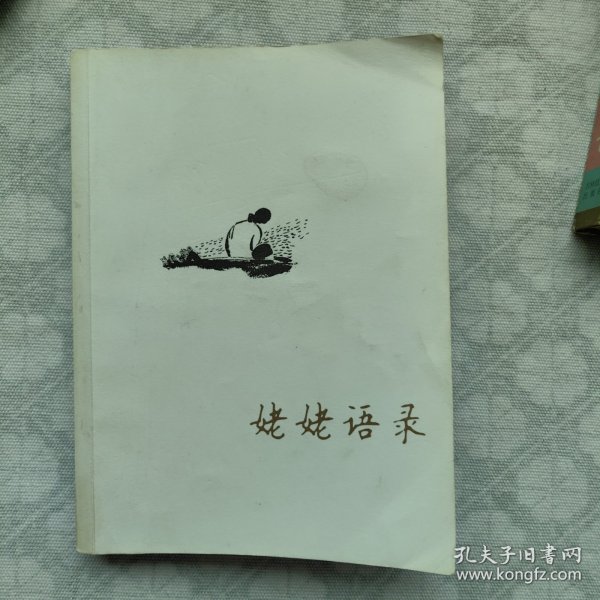 姥姥语录
孔夫子旧書网
www.kongfz.com